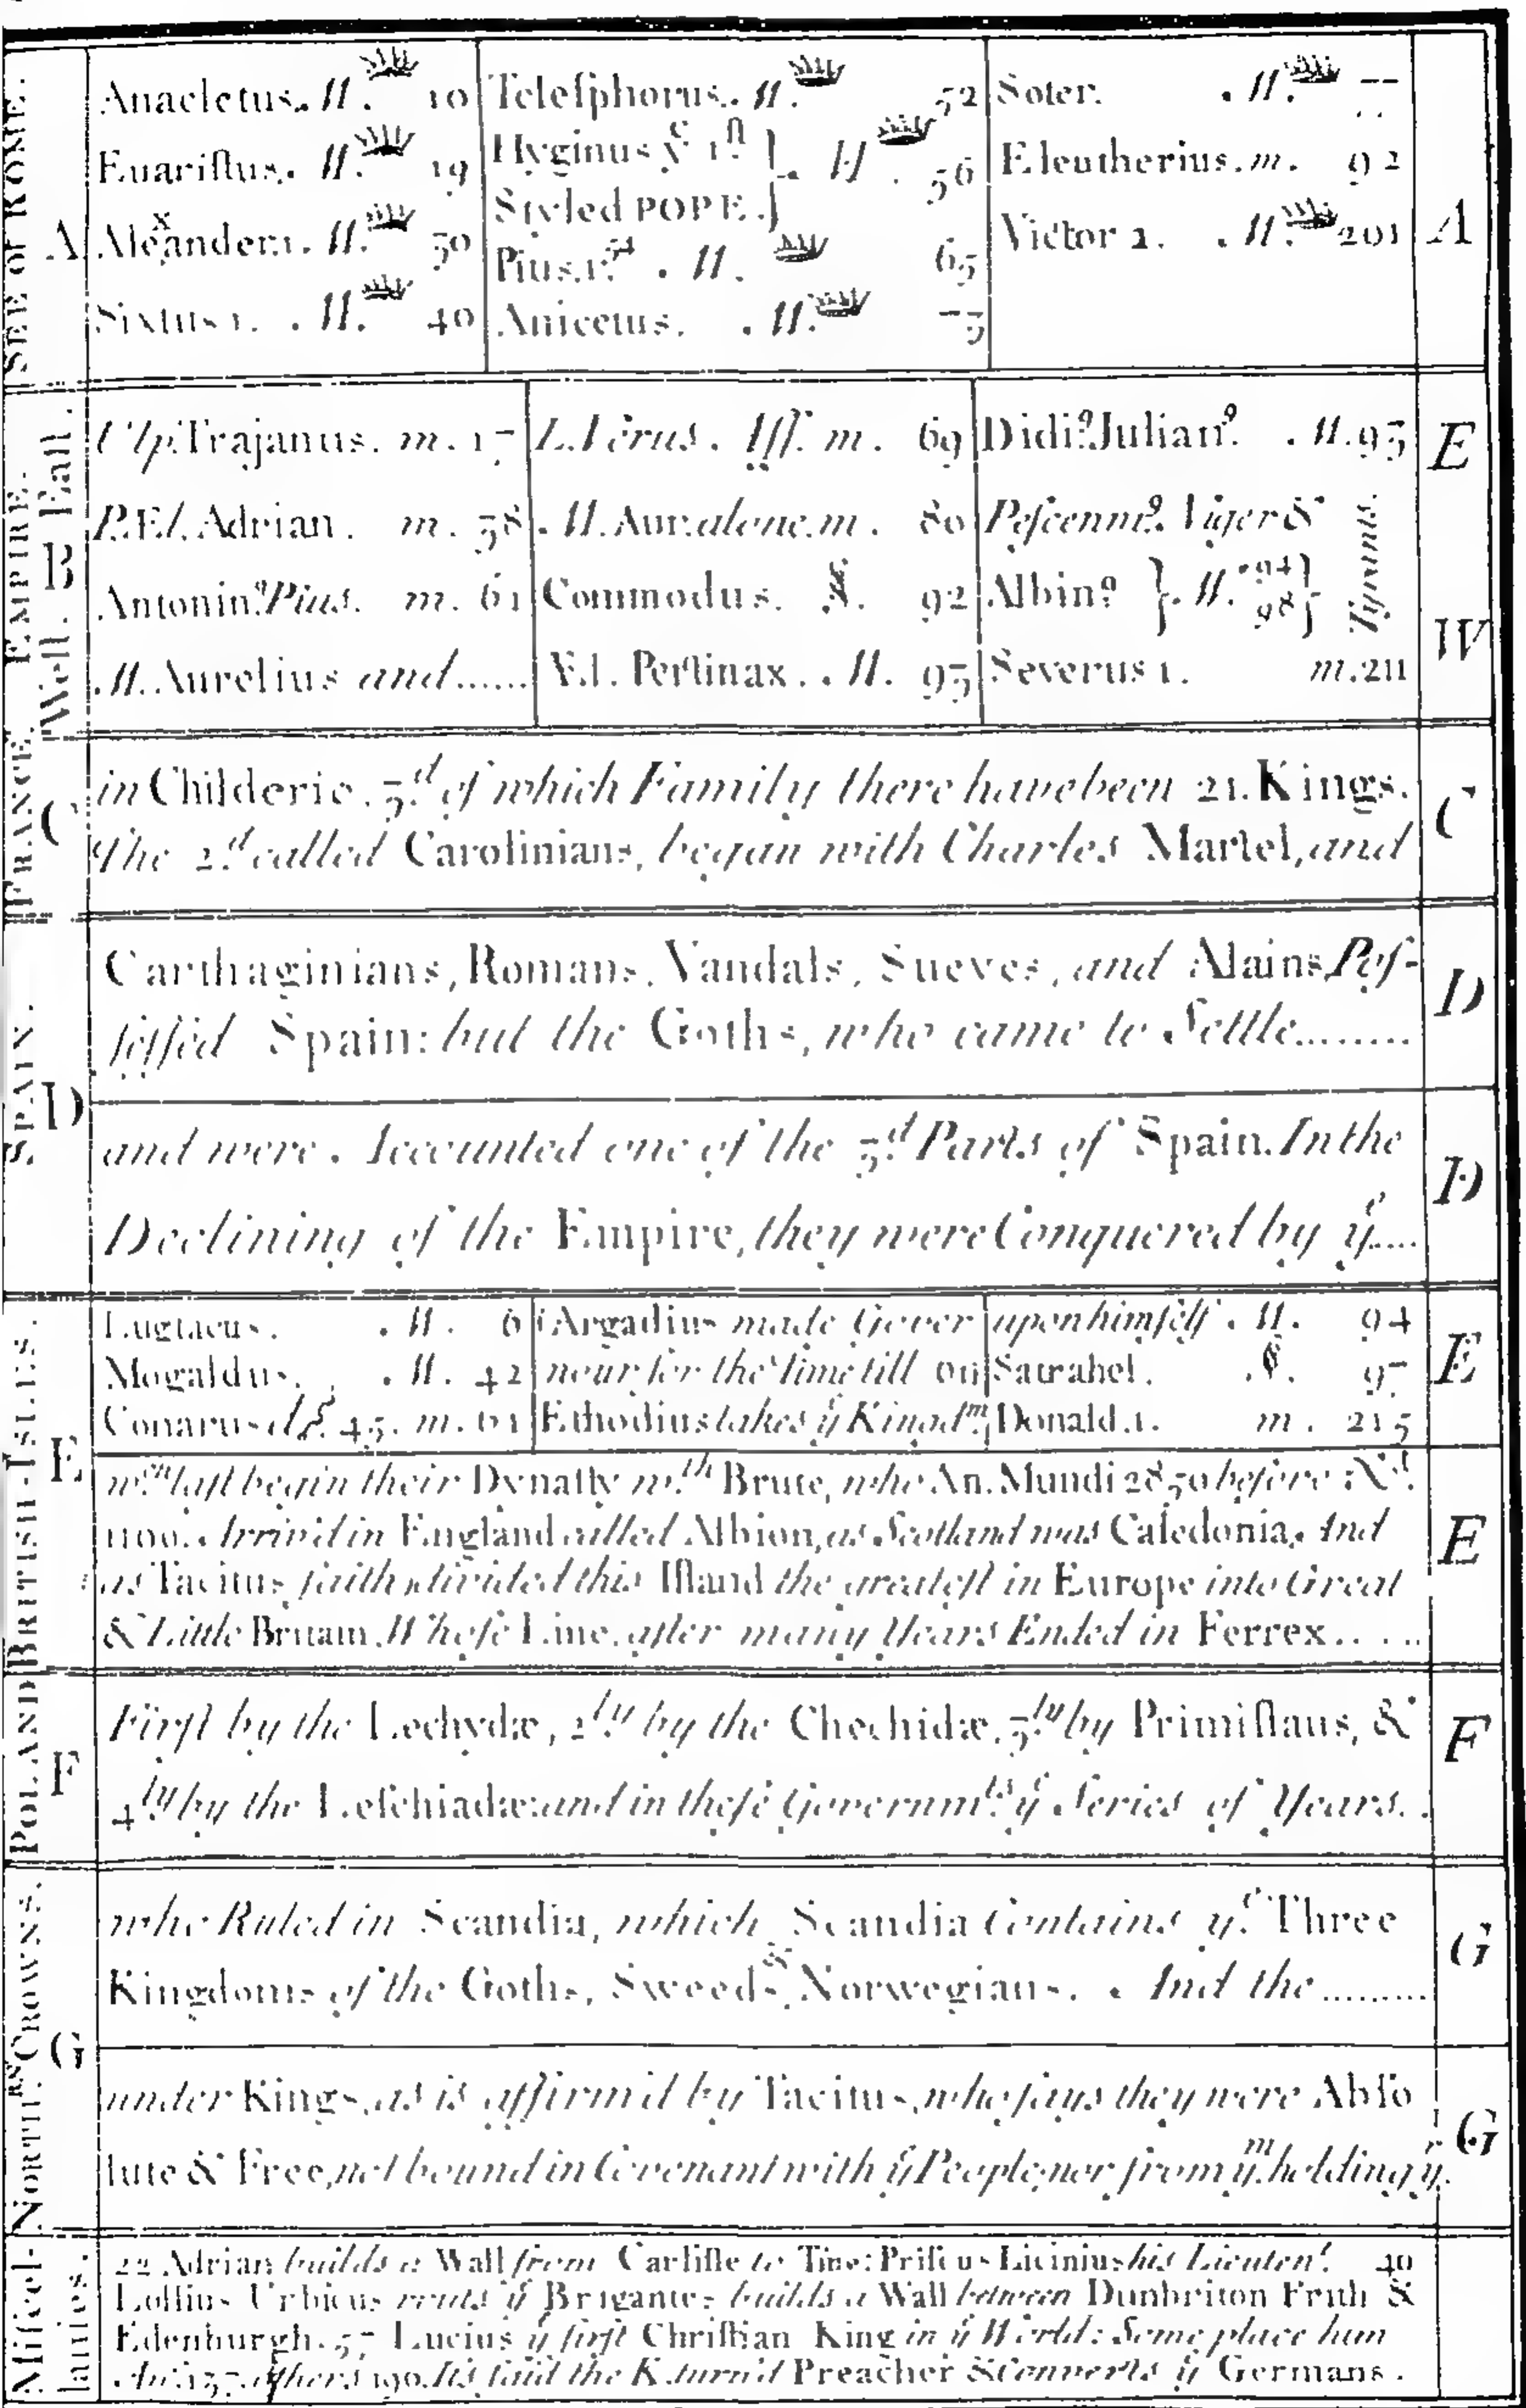 SEE of ROME.
A
Anacletus. M. 10
Euaristus. M. 19
Alexander. 1. M. 30
Sixtus 1. M. 40
Telesphorus. M. 52
Hyginus yᵉ 1ˢᵗ
Styled POPE. } M. 56
Pius. 1. M. 65
Anicetus. M. 75
Soter. M. 77
Eleutherius. m. 92
Victor 1. M. 201
A
EMPIRE.
West. East.
B
Ulp. Trajanus. m. 17
P. Æl. Adrian. m. 38
Antonin9 Pius. m. 61
M. Aurelius and......
L. Verus. Ass. m. 69
M. Aur. alone. m. 80
Commodus. 92
Æl. Pertinax. M. 93
Didi9 Julian9. M. 93
Pescenni9. Niger &
Albin9 } M. 94 98 } Tyrants.
Severus 1. m. 211
E
W
FRANCE.
C
in Childeric. 3.ᵈ of which Family there have been 21. Kings.
The 2.ᵈ called Carolinians, began with Charles Martel, and
C
SPAIN.
D
Carthaginians, Romans, Vandals, Sueves, and Alains, Pos-
sessed Spain: but the Goths, who came to Settle.........
D
and were Accounted one of the 3.ᵈ Parts of Spain. In the
Declining of the Empire, they were Conquered by yᵉ....
D
BRITISH-ISLES.
E
Lugtacus. M. 6
Mogaldus. M. 42
Conarus d/p. 45. m. 61
Argadius made Gover
nour for the time till on
Ethodius takes yᵉ Kingdᵐ.
upon himself. M. 94
Satrahel. 97
Donald. 1. m. 215
E
wᶜʰ last begin their Dynasty wᵗʰ Brute, who An. Mundi 2850 before X.ᵗ
1100. Arriv'd in England called Albion, as Scotland was Caledonia, And
as Tacitus saith, divided this Island the greatest in Europe into Great
& Little Britain. Whose Line, after many Years Ended in Ferrex......
E
POLAND
F
First by the Lechydæ, 2ˡʸ by the Chechidæ, 3ˡʸ by Primislaus, &
4ˡʸ by the Leschiadæ: and in these Governmᵗˢ yᵉ Series of Years..
F
NORTHᴿᴺ. CROWNS.
G
who Ruled in Scandia, which Scandia Contains yᵉ Three
Kingdoms of the Goths, Sweeds, & Norwegians. And the.........
G
under Kings, as is affirm'd by Tacitus, who says they were Abso
lute & Free, not bound in Covenant with yᵉ People, nor from yᵐ. holding yʳ.
G
Miscel-
lanies.
22 Adrian builds a Wall from Carlisle to Tine: Priscus Licinius his Lieutenᵗ. 40
Lollius Urbicus routs yᵉ Brigantes builds a Wall between Dunbriton Frith &
Edenburgh. 57 Lucius yᵉ first Christian King in yᵉ World: Some place him
An. 157. others 190. Its said the K. turn'd Preacher & Converts yᵉ Germans.